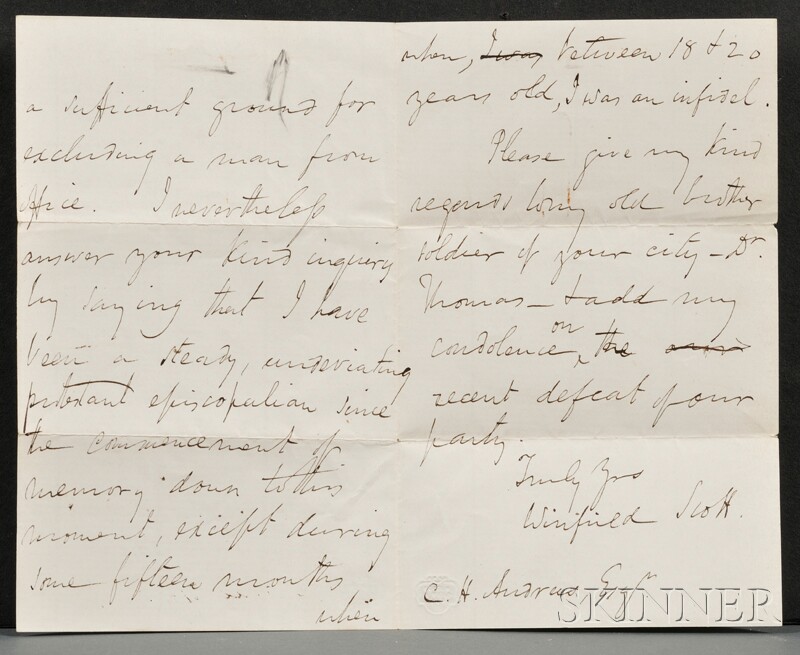 a sufficient ground for
excluding a man from
office. I nevertheless
answer your kind inquiry
by saying that I have
been a steady, undeviating
protestant episcopalian since
the commencement of
memory down to this
moment, except during
some fifteen months
when
when, I was between 18 & 20
years old, I was an infidel.
Please give my kind
regards to my old brother
soldier of your city — Dr.
Thomas — & add my
condolence on the
recent defeat of our
party.
Truly Yrs
Winfield Scott.
C. H. Andrews Esqr
SKINNER